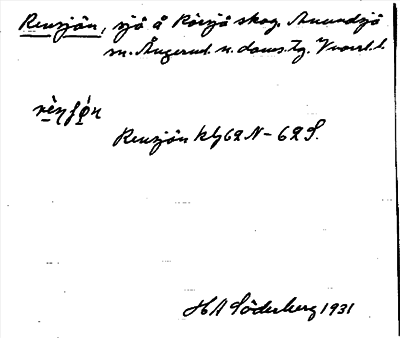 Rensjön, sjö å Rörsjö skog. Anundsjö
sn. Ångerml. n. doms. tg. Vnorrl. l.
rèn̦ʃǿn
Rensjön kbl 62 N - 62 S.
H A Söderberg 1931